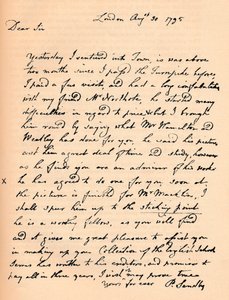 London Augt 30 1795
Dear Sir
Yesterday I ventured into Town, it is was above
two months since I pass'd the Turnpike before,
I paid a few visits, and had a long confabulation
with my friend Mr Northcote, he started many
difficulties in regard to price & but I brought
him round by saying what Mr Hamilton and
Wheatley has done for you, he said his picture
cost him a great deal of time and study, however
as he finds you are an admirer of his works
x he has agreed to it one for you, soon as
the picture is finish'd for Mr Macklin, I
shall spur him up to the sticking point
he is a worthy fellow, as you will find
and it gives me great pleasure to assist you
in making up your Collection of the English School
has written to his and promises to
pay all in three years, I wish may prove true
Yours for ever P. Sandby